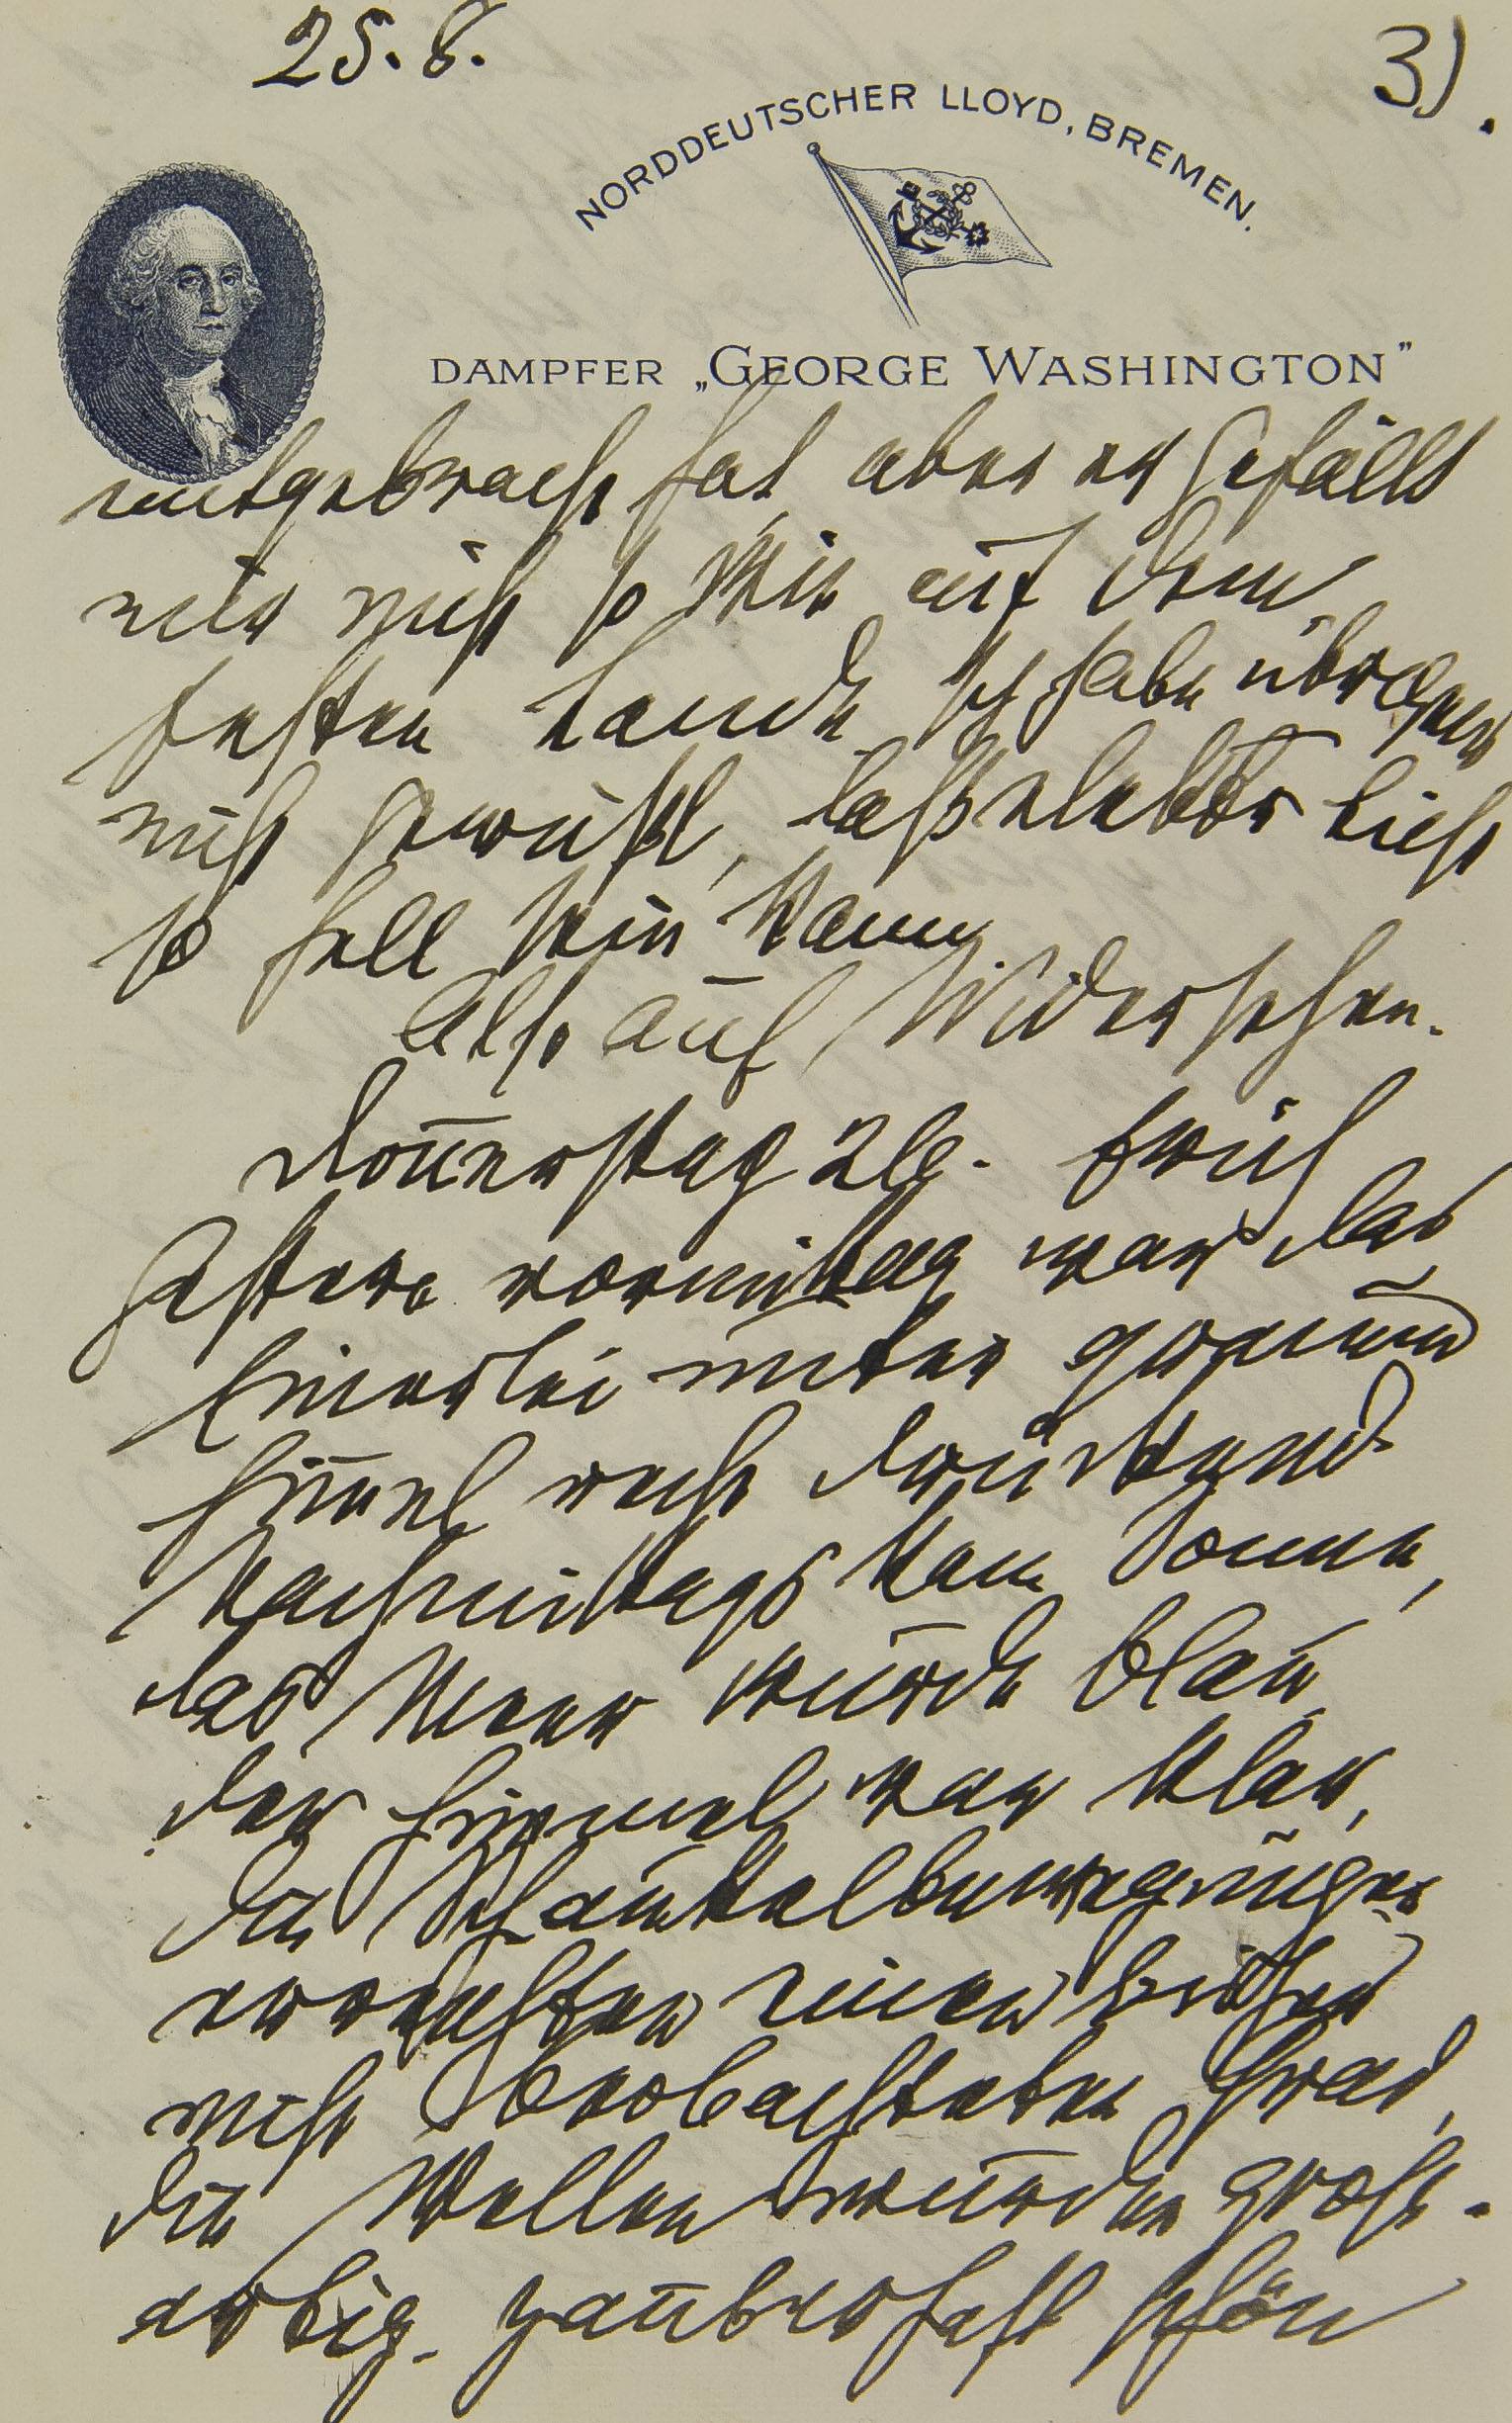 25.8.
3).
NORDDEUTSCHER LLOYD, BREMEN.
DAMPFER „GEORGE WASHINGTON"
mitgebracht hat, aber es gefällt
mir nicht so wie auf dem
festen Lande Ich habe übrigens
nicht gewußt, daß elektr Licht
so hell sein kann
Also auf Wiedersehen.
Donnerstag 26. früh
Gestern vormittag war das
Einerlei unter grauem
Himmel recht drückend
Nachmittags kam Sonne,
das Meer wurde blau,
der Himmel war klar,
die Schaukelbewegungen
erreichten einen bisher
nicht beobachteten Grad,
die Wellen wurden groß-
artig. zauberhaft schön